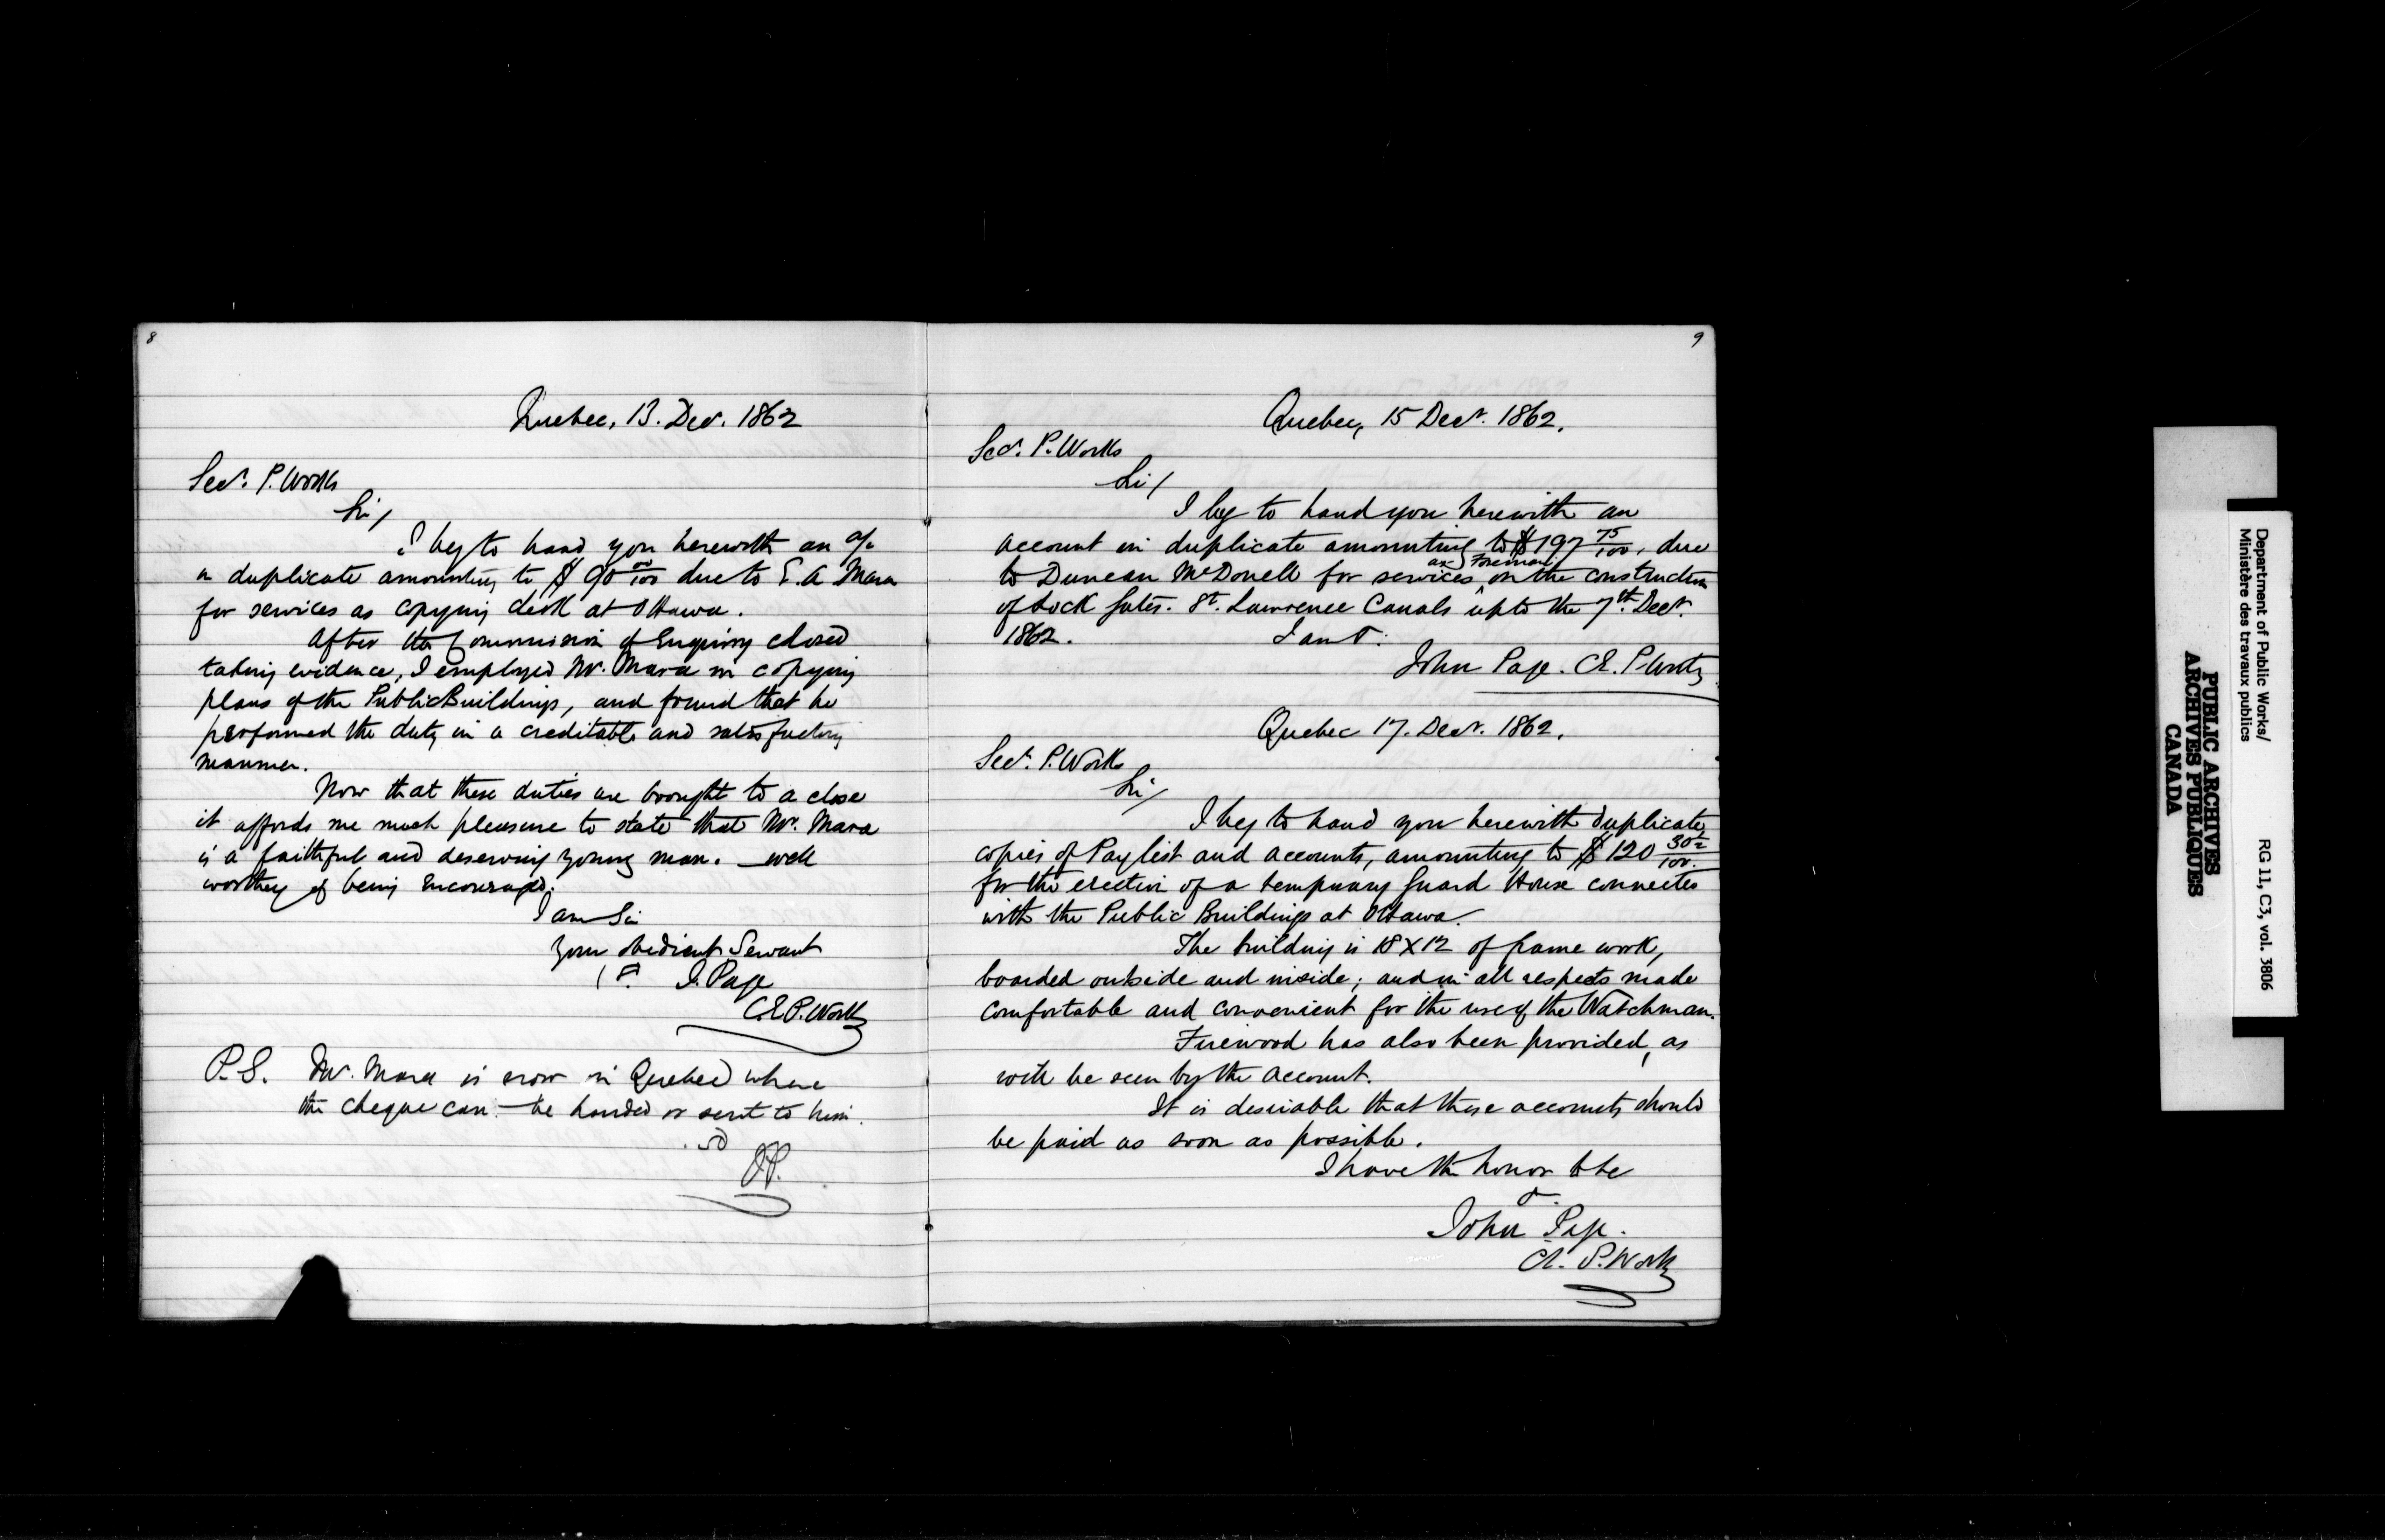 8
Quebec, 13. Decr. 1862
Secy. P. Works
Sir/
I beg to hand you herewith an a/c
in duplicate amounting to $90 00/100 due to E. A Mara
for services as copying clerk at Ottawa.
After the Commission of Enquiry closed
taking evidence, I employed Mr. Mara in copying
plans of the Public Buildings, and found that he
performed the duty in a creditable and satisfactory
manner.
Now that these duties are brought to a close
it affords me much pleasure to state that Mr. Mara
is a faithful and deserving young man. – well
worthy of being encouraged.
I am Sir
Your obedient Servant
J. Page
C.E P. Works
P.S. Mr. Mara is now in Quebec where
the cheque can be handed or sent to him.
JP.
9
Quebec, 15 Decr. 1862.
Secy. P. Works
Sir/
I beg to hand you herewith an
account in duplicate amounting to $197 75/100, due
to Duncan McDonell for services as Foreman on the construction
of Lock Gates. St. Lawrence Canals up to the 7th. Decr.
1862. I am &.
John Page. C.E. P. Works
Quebec 17. Decr. 1862.
Secy. P. Works
Sir/
I beg to hand you herewith duplicate
copies of Pay list and accounts, amounting to $120 30½/100.
for the erection of a temporary Guard House connected
with the Public Buildings at Ottawa.
The building is 18 X 12 of frame work,
boarded outside and inside; and in all respects made
comfortable and convenient for the use of the Watchman.
Firewood has also been provided, as
will be seen by the account.
It is desirable that these accounts should
be paid as soon as possible.
I have the honor to be
&.
John Page.
C.E. P. Works
Department of Public Works/
Ministère des travaux publics
RG 11, C3, vol. 3806
PUBLIC ARCHIVES
ARCHIVES PUBLIQUES
CANADA